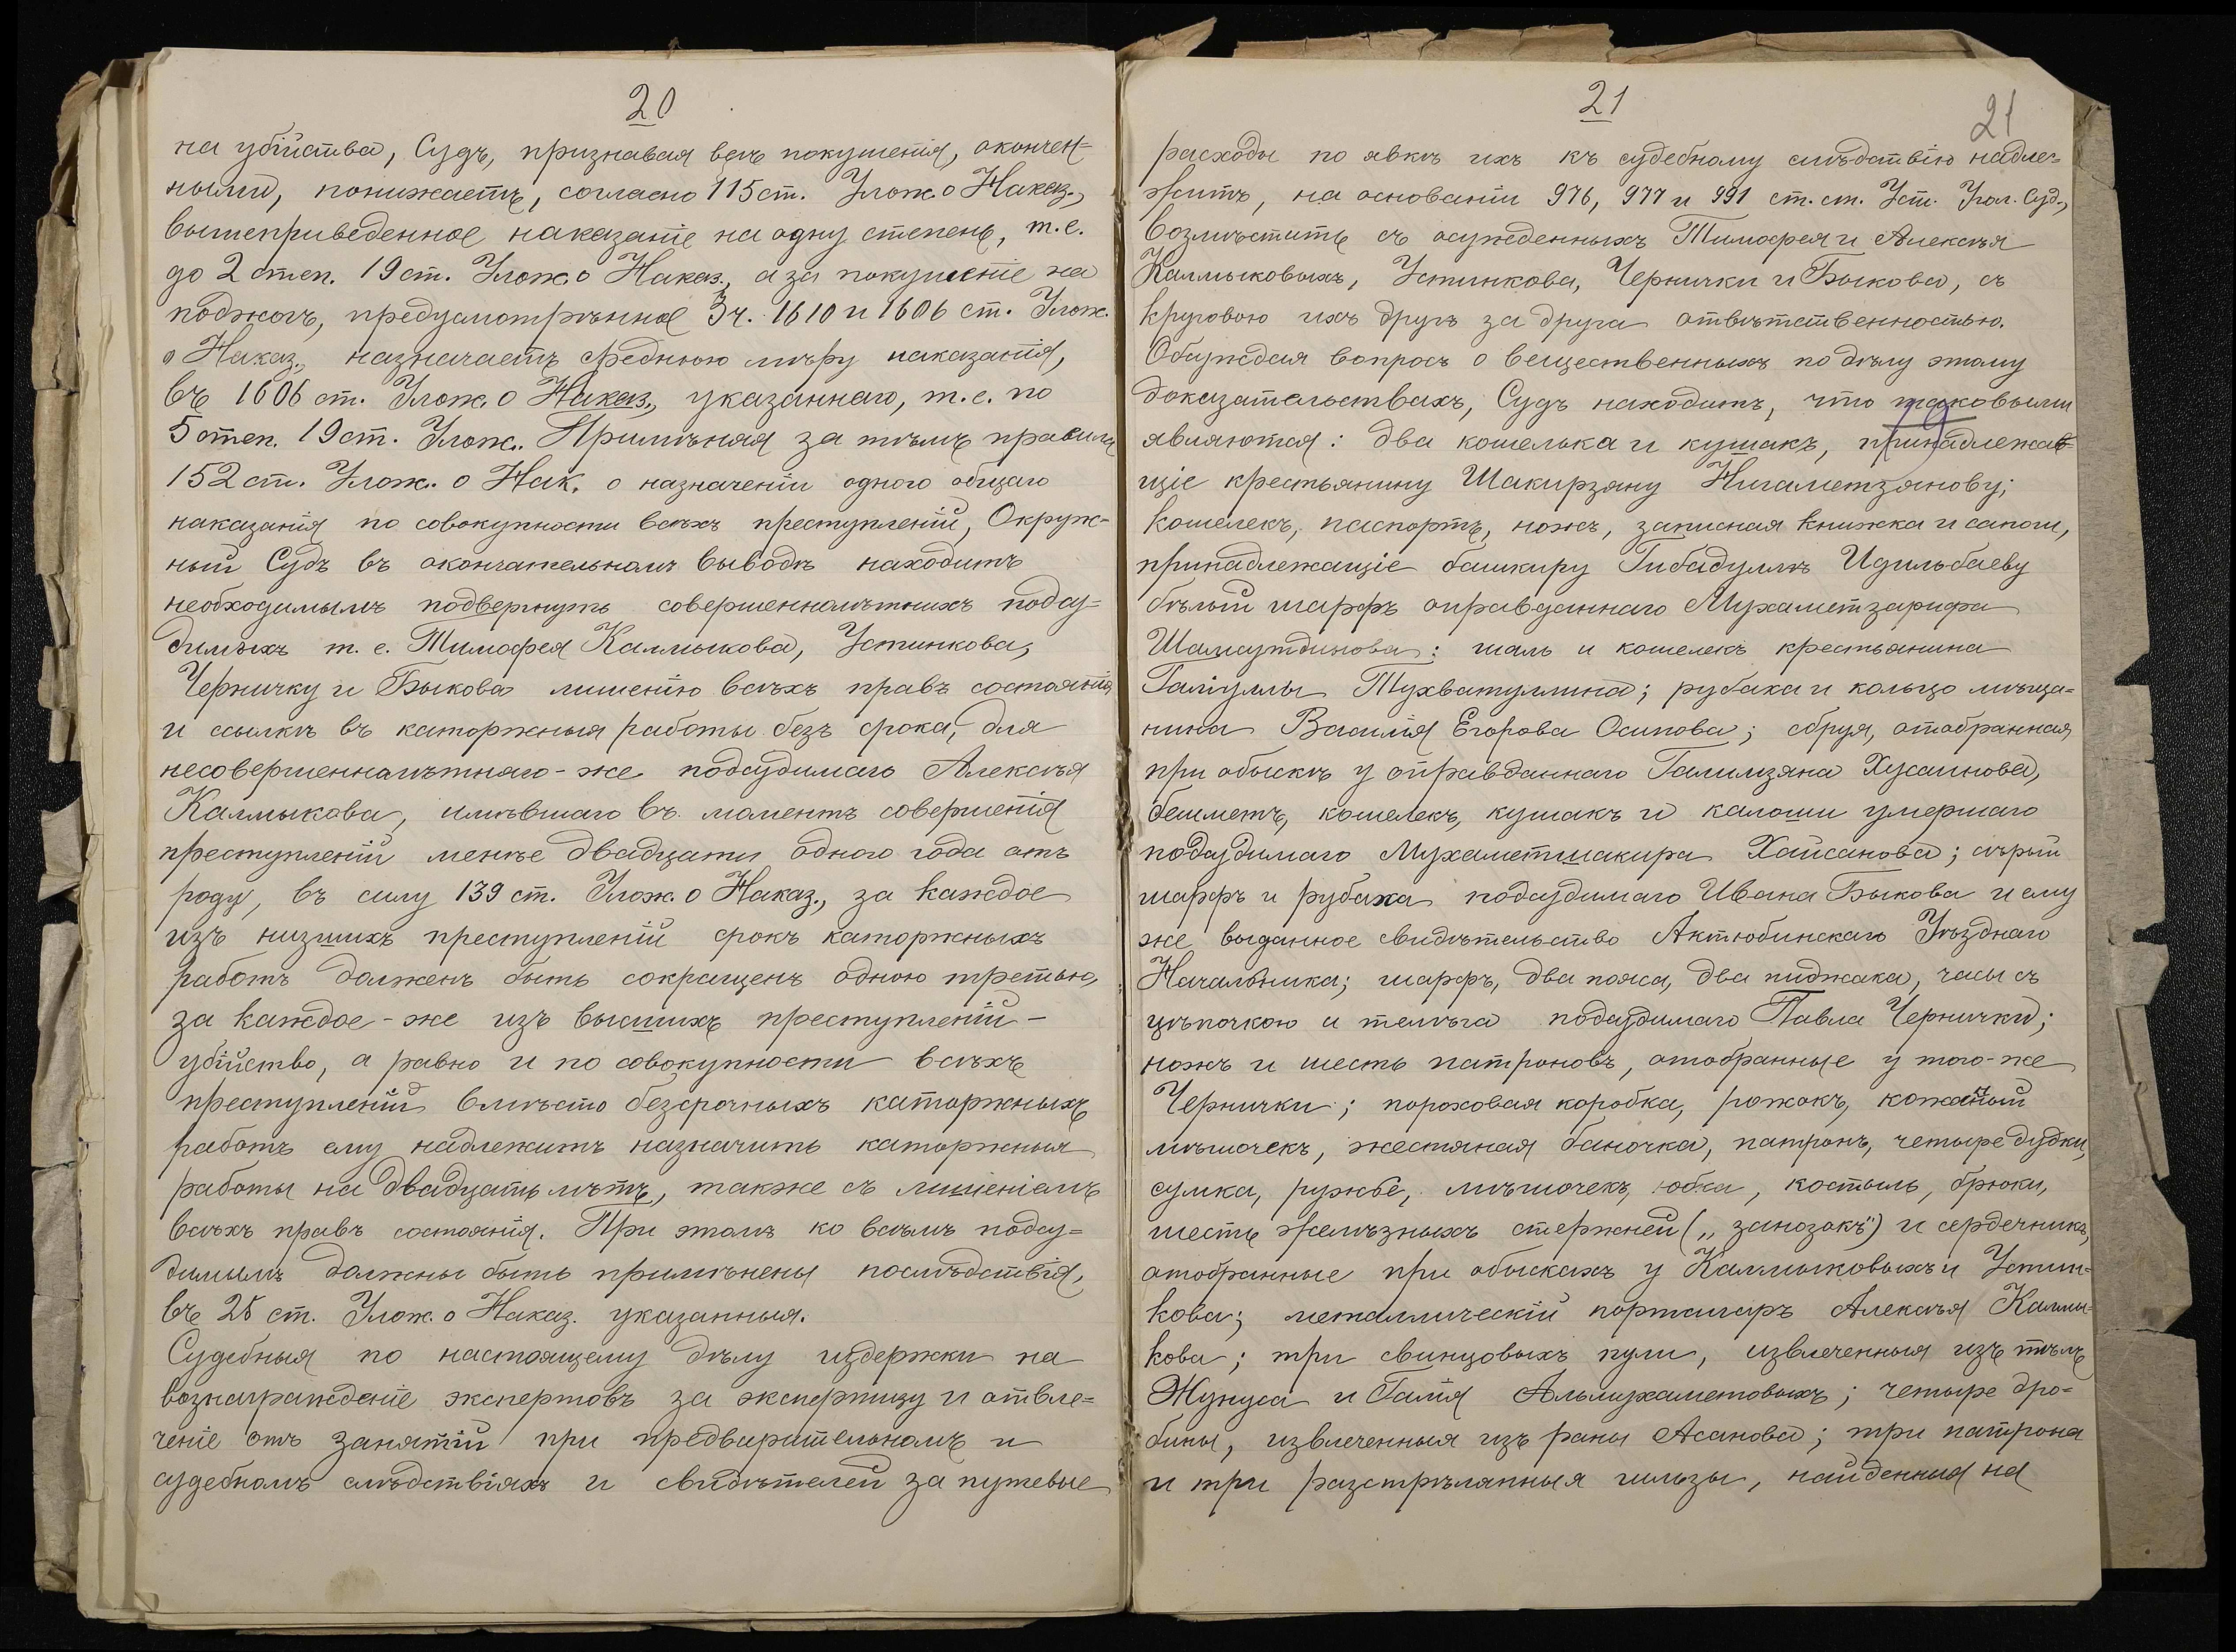 20
на убійства, Судъ, признавая всѣ покушенія, окончен=
ными, понижаетъ, согласно 115 ст. Улож. о Наказ.,
вышеприведенное наказаніе на одну степень, т.е.
до 2 степ. 19 ст. Улож. о Наказ., а за покушеніе на
поджогъ, предусмотрѣнное 3 ч. 1610 и 1606 ст. Улож.
о Наказ., назначаетъ среднюю мѣру наказанія,
въ 1606 ст. Улож. о Наказ., указаннаго, т.е. по
5 степ. 19 ст. Улож. Примѣняя за тѣмъ правила
152 ст. Улож. о Нак. о назначеніи одного общаго
наказанія по совокупности всѣхъ преступленій, Окруж=
ный Судъ въ окончательномъ выводѣ находитъ
необходимымъ подвергнуть совершеннолѣтнихъ подсу=
димыхъ т.е. Тимофея Калмыкова, Устинкова,
Черничку и Быкова лишенію всѣхъ правъ состоянія
и ссылкѣ въ каторжныя работы безъ срока, для
несовершеннолѣтняго-же подсудимаго Алексѣя
Калмыкова, имѣвшаго въ моментъ совершенія
преступленій менѣе двадцати одного года отъ
роду, въ силу 139 ст. Улож. о Наказ., за каждое
изъ низшихъ преступленій срокъ каторжныхъ
работъ долженъ быть сокращенъ одною третью,
за каждое-же изъ высшихъ преступленій –
убійство, а равно и по совокупности всѣхъ
преступленій вмѣсто безсрочныхъ каторжныхъ
работъ ему надлежитъ назначить каторжныя
работы на двадцать лѣтъ, также съ лишеніемъ
всѣхъ правъ состоянія. При этомъ ко всѣмъ подсу=
димымъ должны быть примѣнены послѣдствія,
въ 25 ст. Улож. о Наказ. указанныя.
Судебныя по настоящему дѣлу издержки на
вознагражденіе экспертовъ за экспертизу и отвле=
ченіе отъ занятій при предварительномъ и
судебномъ слѣдствіяхъ и свидѣтелей за путевые
21
21
расходы по явкѣ ихъ къ судебному слѣдствію надле=
житъ, на основаніи 976, 977 и 991 ст. ст. Уст. Угол. Суд.,
возмѣстить съ осужденныхъ Тимофея и Алексѣя
Калмыковыхъ, Устинкова, Чернички и Быкова, съ
круговою ихъ другъ за друга отвѣтственностью.
Обсуждая вопросъ о вещественныхъ по дѣлу этому
доказательствахъ, Судъ находитъ, что таковыми
являются: два кошелька и кушакъ, принадлежав=
щіе крестьянину Шакирзяну Нигаметзянову;
кошелекъ, паспортъ, ножъ, записная книжка и сапоги,
принадлежащіе башкиру Гибадуллѣ Идильбаеву
бѣлый шарфъ оправданнаго Мухаметзарифа
Шамсутдинова; шаль и кошелекъ крестьянина
Галіуллы Тухватуллина; рубаха и кольцо мѣща=
нина Василія Егорова Осипова; сбруя, отобранная
при обыскѣ у оправданнаго Галимзяна Хусаинова,
бешметъ, кошелекъ, кушакъ и калоши умершаго
подсудимаго Мухаметшакира Хайсанова; сѣрый
шарфъ и рубаха подсудимаго Ивана Быкова и ему
же выданное свидѣтельство Актюбинскаго Уѣзднаго
Начальника; шарфъ, два пояса, два пиджака, часы съ
цѣпочкою и телѣга подсудимаго Павла Чернички;
ножъ и шесть патроновъ, отобранные у того-же
Чернички; пороховая коробка, рожокъ, кожаный
мѣшочекъ, жестяная баночка, патронъ, четыре дудки,
сумка, ружье, мѣшочекъ, юбка, костыль, брюки,
шесть желѣзныхъ стержней („занозокъ") и сердечникъ,
отобранные при обыскахъ у Калмыковыхъ и Устин=
кова; металлическій портсигаръ Алексѣя Калмы=
кова; три свинцовыхъ пули, извлеченныя изъ тѣлъ
Жунуса и Галія Альмухаметовыхъ; четыре дро=
бины, извлеченныя изъ раны Асанова; три патрона
и три разстрѣлянныя гильзы, найденныя на